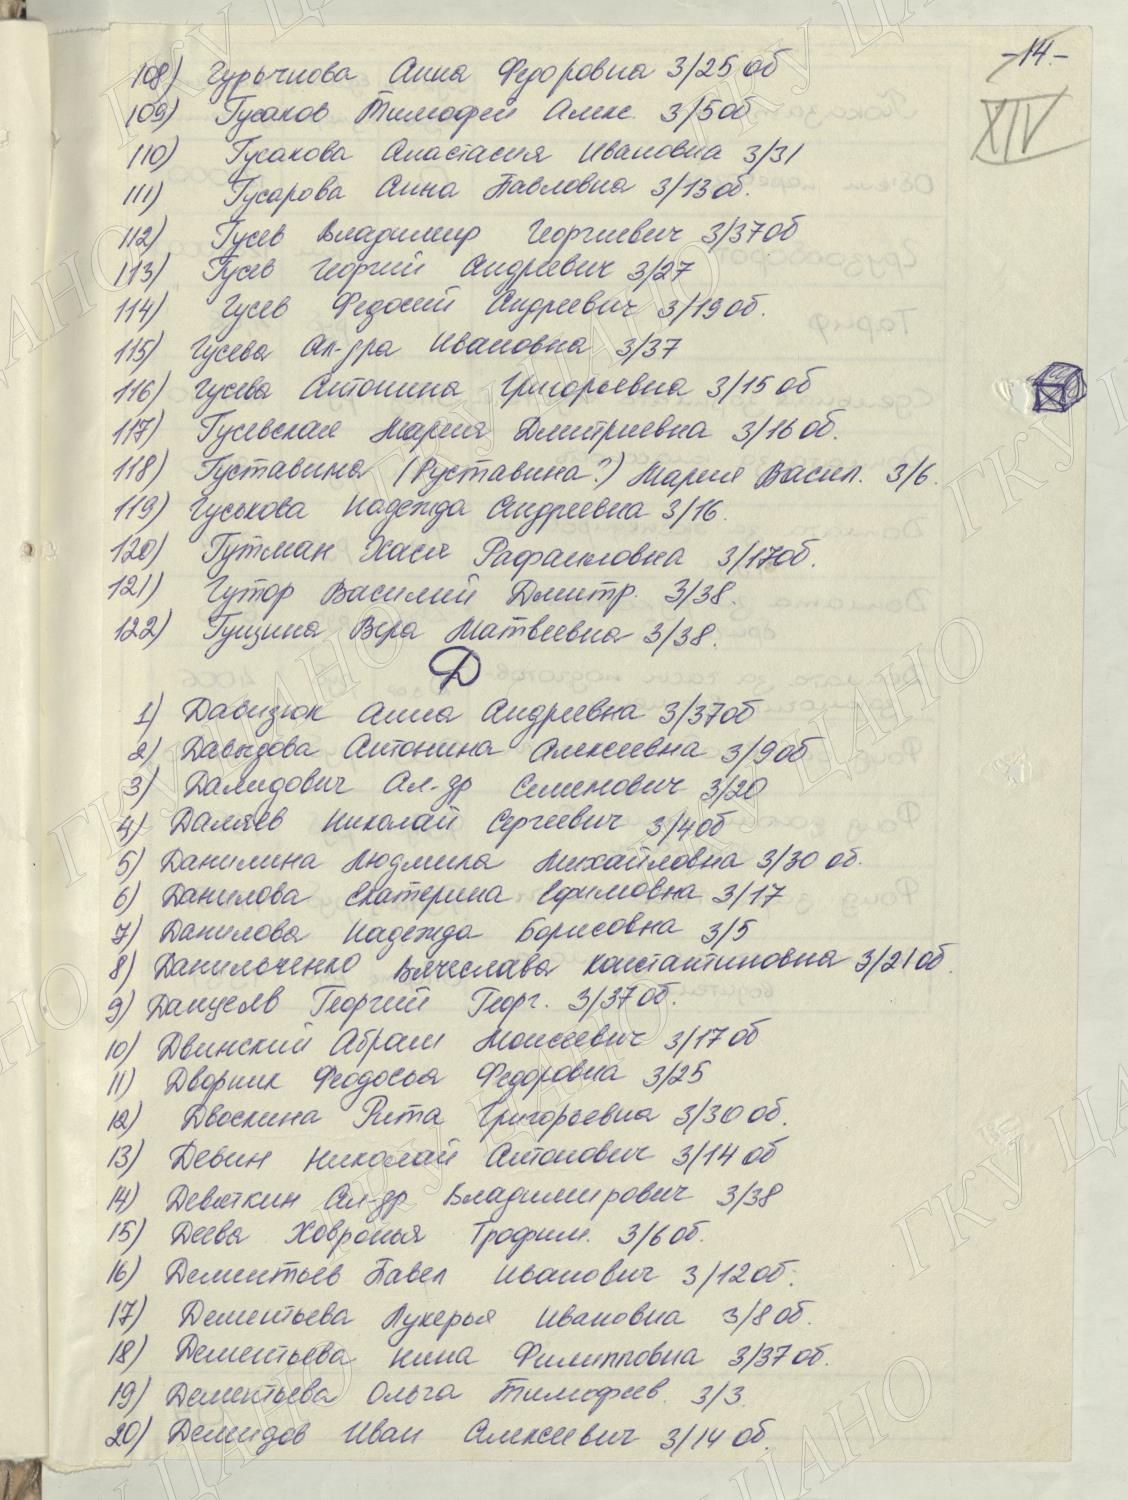 -14.-
XIV
108) Гурьянова Анна Федоровна 3/25 об
109) Гусаков Тимофей Алекс. 3/5 об
110) Гусакова Анастасия Ивановна 3/31
111) Гусарова Анна Павловна 3/13 об.
112) Гусев Владимир Георгиевич 3/37 об
113) Гусев Георгий Андреевич 3/27
114) Гусев Федосей Андреевич 3/19 об.
115) Гусева Ал-дра Ивановна 3/37
116) Гусева Антонина Григорьевна 3/15 об
117) Гусевская Мария Дмитриевна 3/16 об.
118) Густавина (Руставина?) Мария Васил. 3/6.
119) Гуськова Надежда Андреевна 3/16.
120) Гутман Хася Рафаиловна 3/17 об.
121) Гутор Василий Дмитр. 3/38.
122) Гущина Вера Матвеевна 3/38.
Д
1) Давизюк Анна Андреевна 3/37 об
2) Давыдова Антонина Алексеевна 3/9 об
3) Дамидович Ал-др Семенович 3/20
4) Николай Сергеевич 3/4 об
5) Данилина Людмила Михайловна 3/30 об.
6) Данилова Екатерина Ефимовна 3/17
7) Данилова Надежда Борисовна 3/5
8) Данильченко Вячеслава Константиновна 3/21 об.
9) Георгий Георг. 3/37 об.
10) Двинский Абрам Моисеевич 3/17 об
11) Дворник Феодосья Федоровна 3/25
12) Двоскина Рита Григорьевна 3/30 об.
13) Девин Николай Антонович 3/14 об
14) Девяткин Ал-др Владимирович 3/38
15) Деева Ховронья Трофим. 3/6 об.
16) Дементьев Павел Иванович 3/12 об.
17) Дементьева Лукерья Ивановна 3/8 об.
18) Дементьева Нина Филипповна 3/37 об.
19) Дементьева Ольга Тимофеев. 3/3.
20) Демидов Иван Алексеевич 3/14 об.